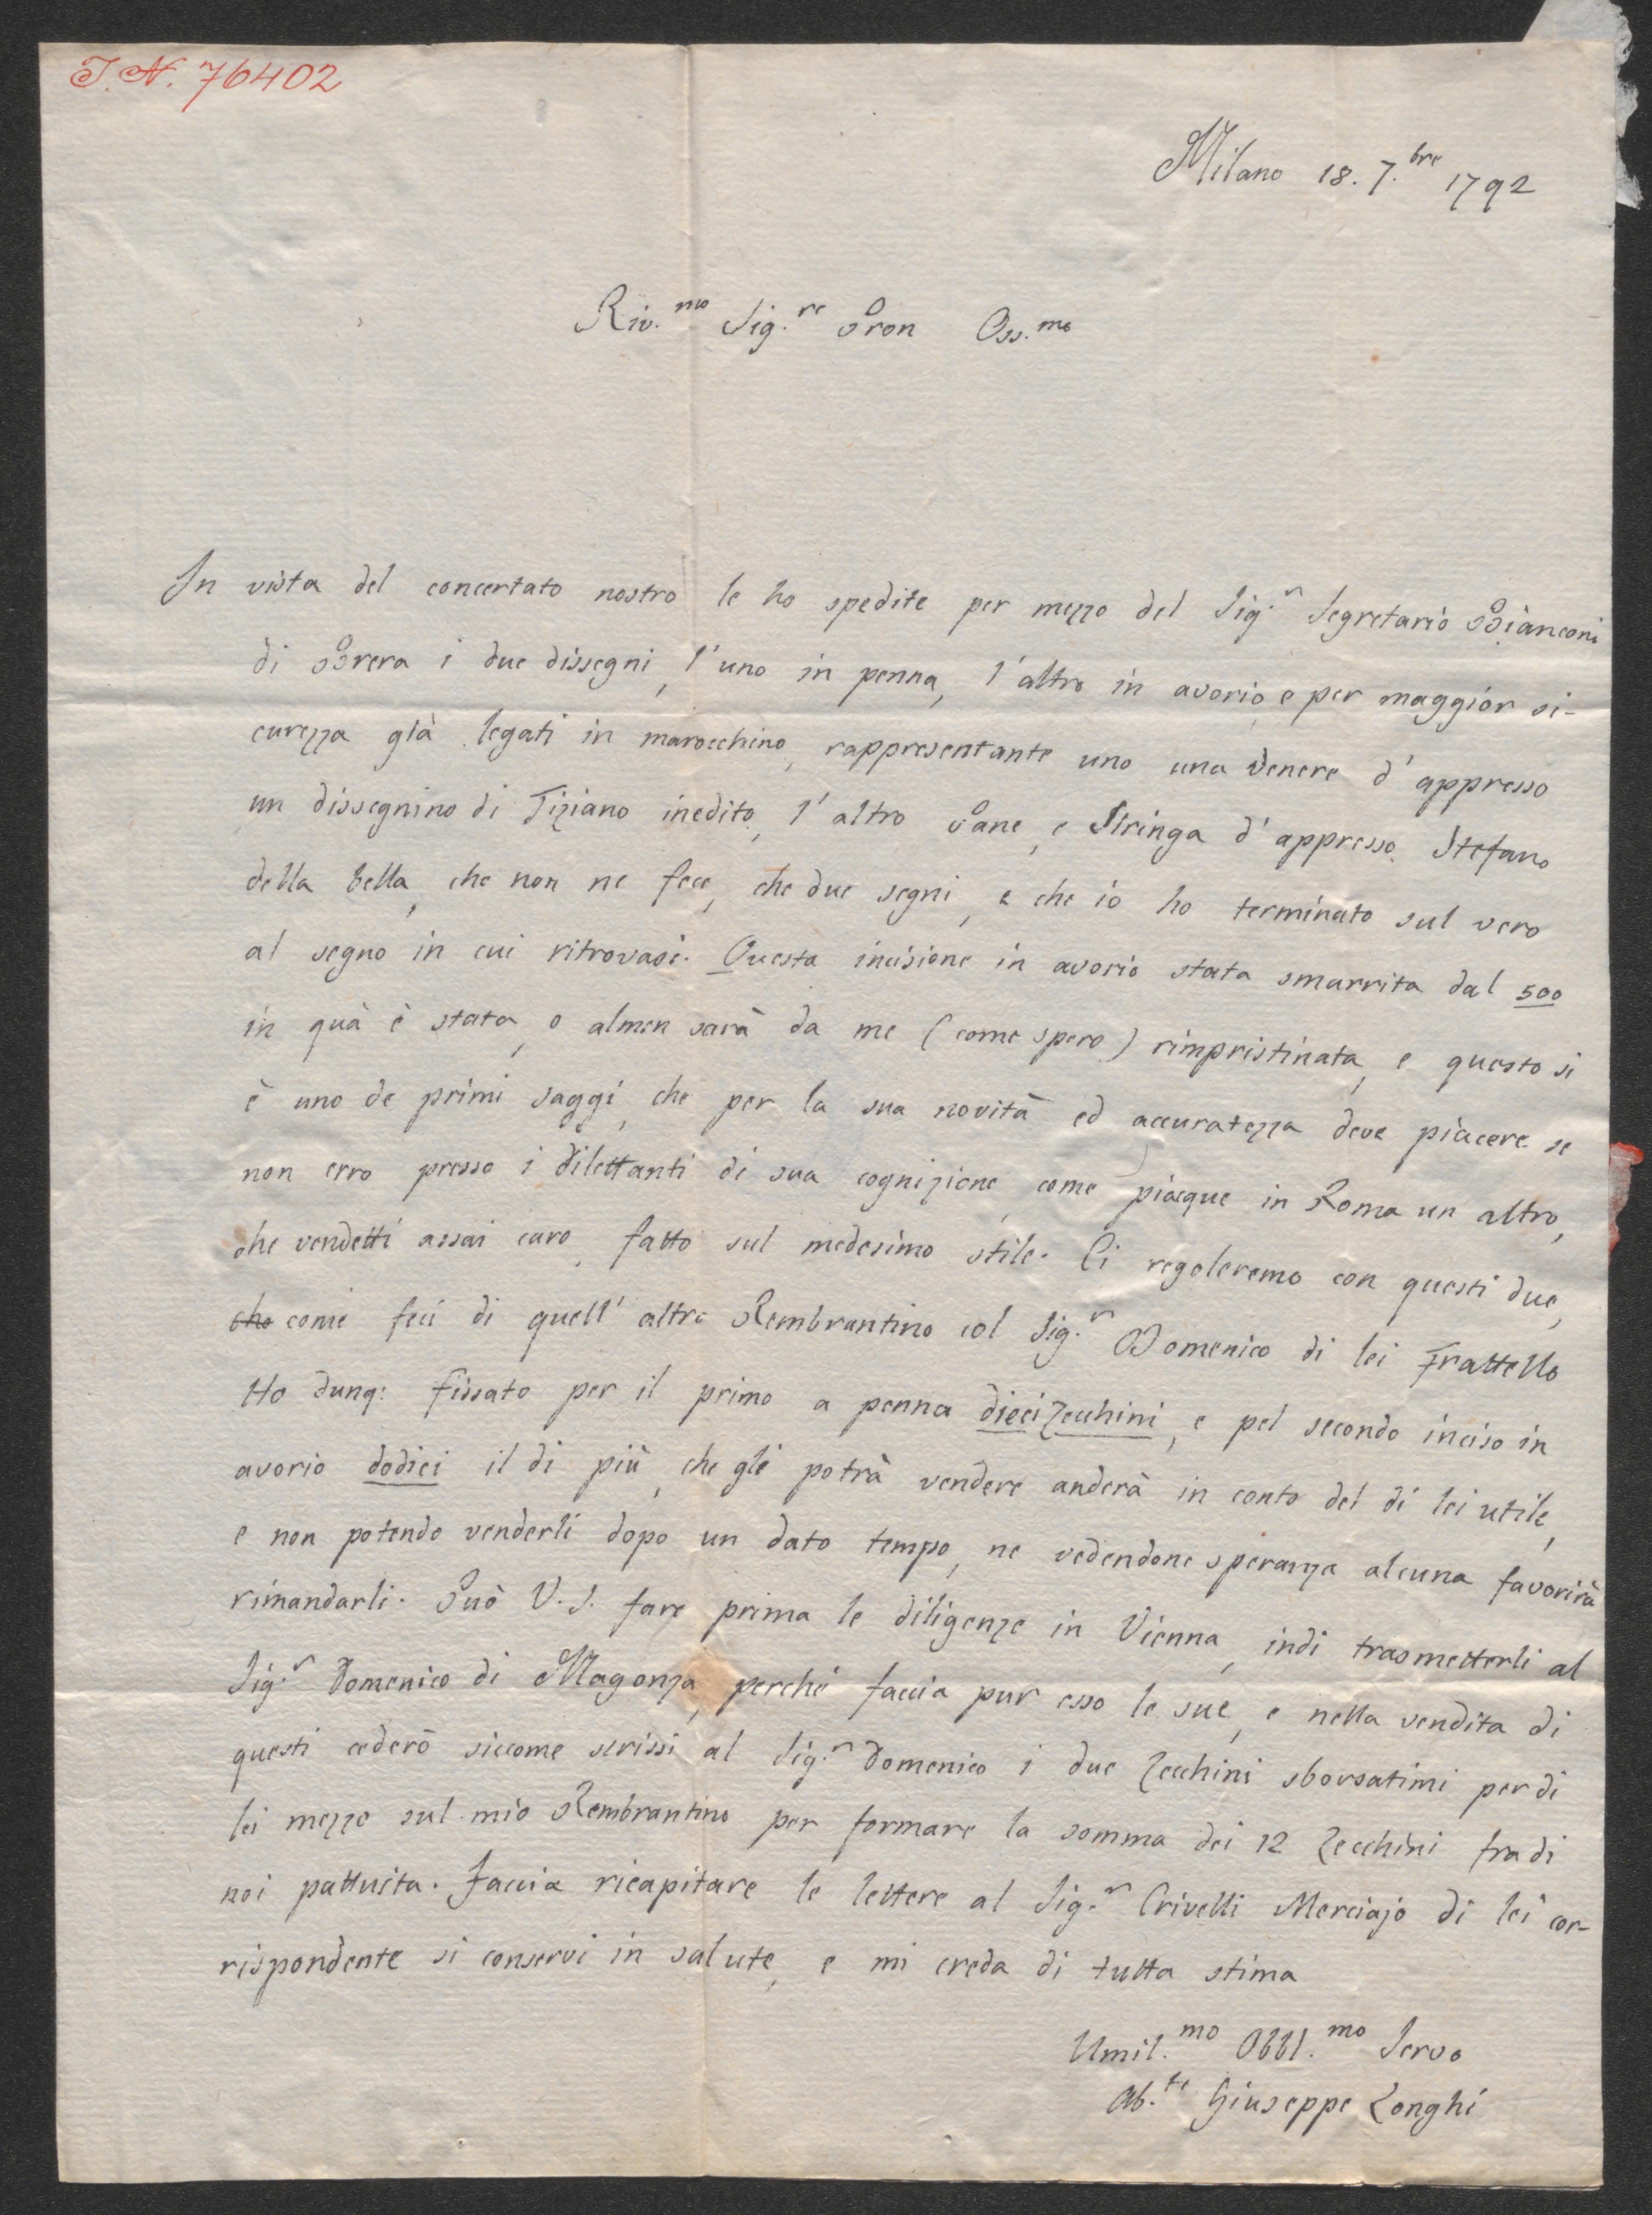 I.N. 76402
Milano 18. 7.bre 1792
Riv.mo Sig.re Pron Oss.mo
In vista del concertato nostro le ho spedite per mezzo del Sig.r Segretario Bianconi
di Brera i due dissegni, l'uno in penna, l'altro in avorio, e per maggior si-
curezza già legati in marocchino, rappresentante uno una Venere d'appresso
un dissegnino di Tiziano inedito, l'altro Pane, e Siringa d'appresso Stefano
della bella, che non ne fece, che due segni, e che io ho terminato sul vero
al segno in cui ritrovasi. Questa incisione in avorio stata smarrita dal 500
in quà è stata, o almen sarà da me (come spero) rimpristinata, e questo si
è uno de primi saggi, che per la sua novità ed accuratezza deve piacere se
non erro presso i dilettanti di sua cognizione, come piacque in Roma un altro,
che vendetti assai caro, fatto sul medesimo stile. Ci regoleremo con questi due,
che come feci di quell'altro Rembrantino col Sig.r Domenico di lei Frattello
Ho dunq: fissato per il primo a penna dieci Zecchini, e pel secondo inciso in
avorio dodici il di più, che gli potrà vendere anderà in conto del di lei utile,
e non potendo venderli dopo un dato tempo, ne vedendone speranza alcuna favorirà
rimandarli. Può V.S. fare prima le diligenze in Vienna, indi trasmetterli al
Sig.r Domenico di Magonza, perché faccia pur esso le sue, e nella vendita di
questi cederò siccome scrissi al Sig.r Domenico i due Zecchini sborsatimi per di
lei mezzo sul mio Rembrantino per formare la somma dei 12 Zecchini fra di
noi pattuita. Faccia ricapitare le lettere al Sig.r Crivelli Merciajo di lei cor-
rispondente si conservi in salute, e mi creda di tutta stima
Umil.mo Obbl.mo Servo
Ab.te Giuseppe Longhi